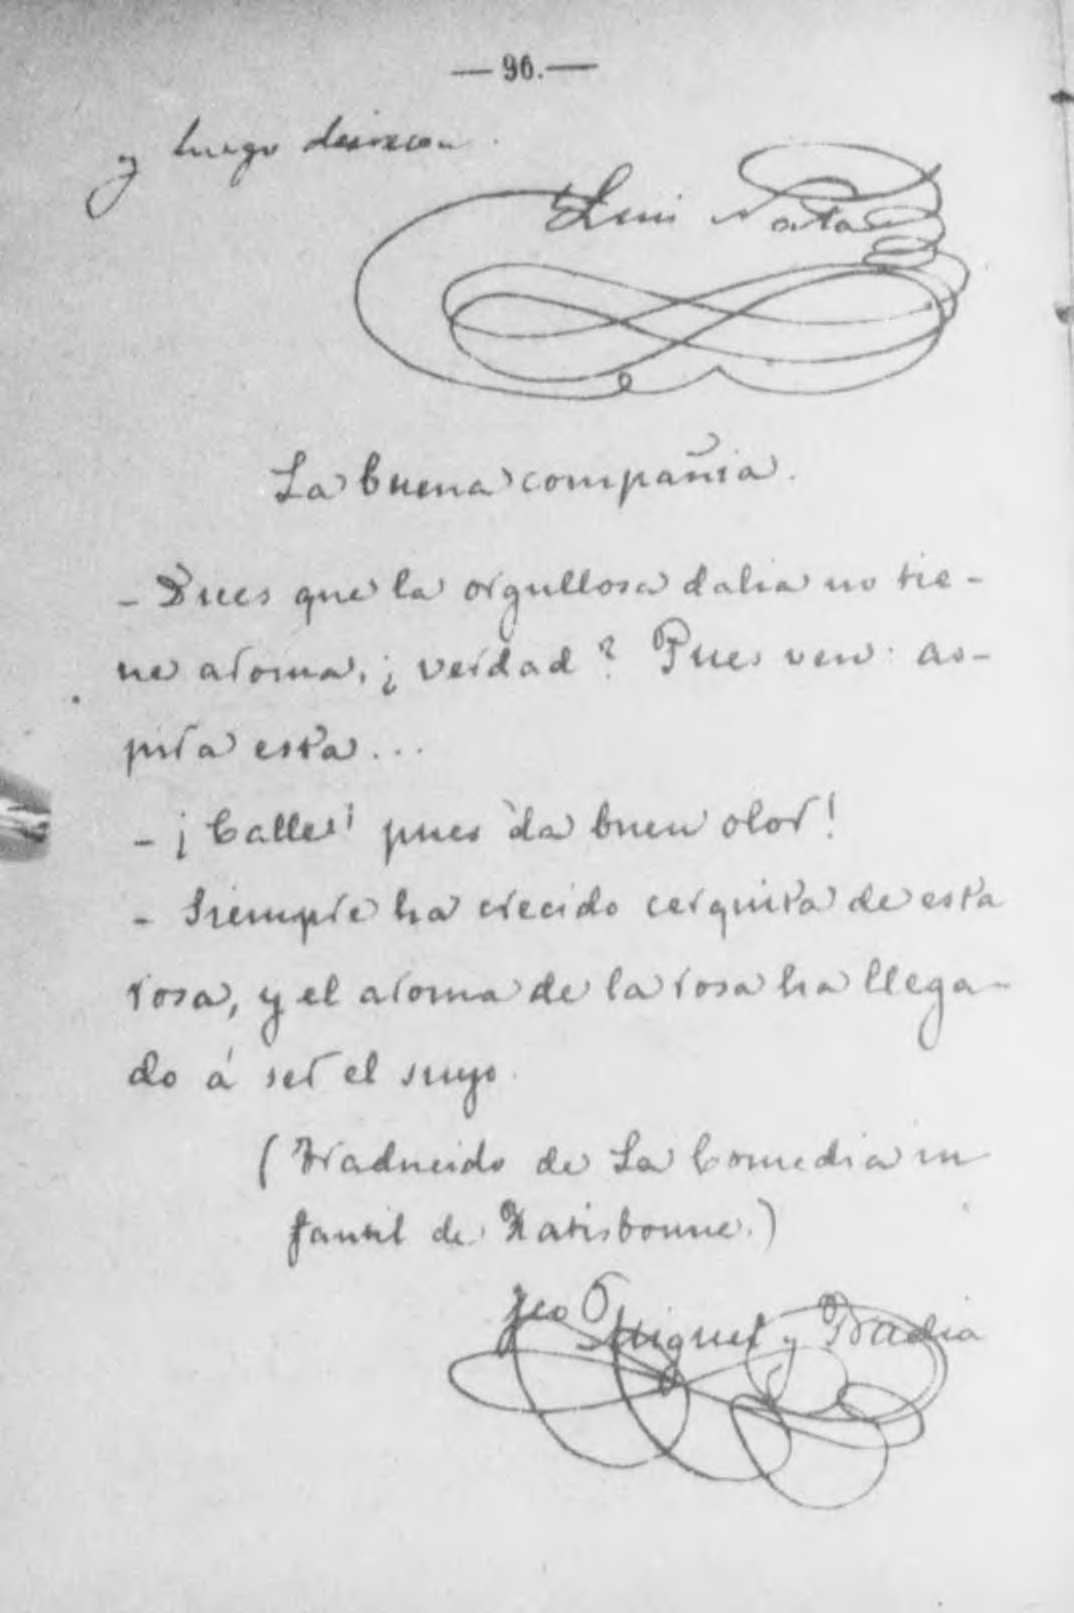 — 96. —
y luego
Luis Nata
La buena compañia.
- Dices que la orgullosa dalia no tie-
ne aroma, ¿ verdad ? Pues ven: as-
pira esta...
- ¡ Calle! pues da buen olor!
- Siempre ha crecido cerquita de esta
rosa, y el aroma de la rosa ha llega-
do á ser el suyo.
(Traducido de La Comedia in
fantil de Ratisbonne.)
Fco Miquel y Badia